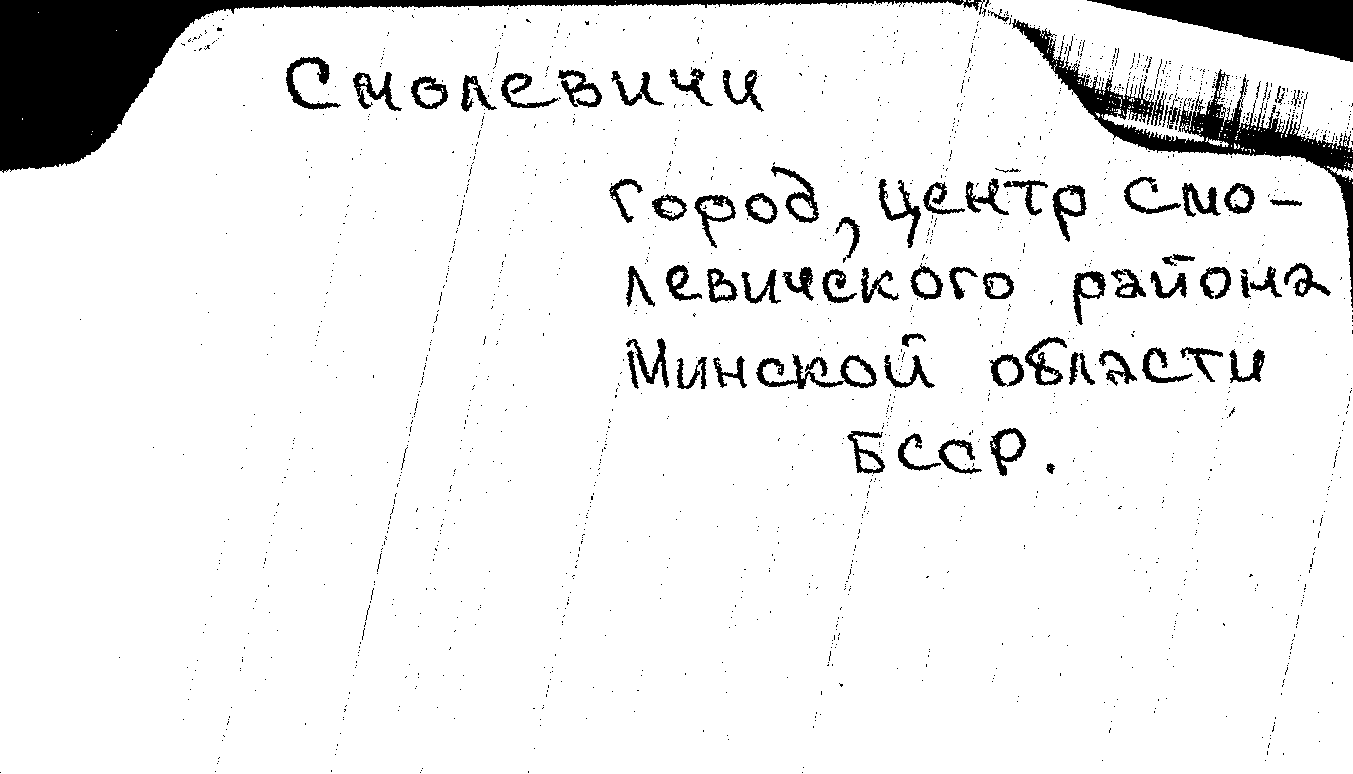 Смолевичи
город, центр Смо-
левичского района
Минской области
БССР.